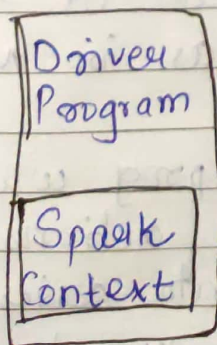 Driver
Program
Spark
Context